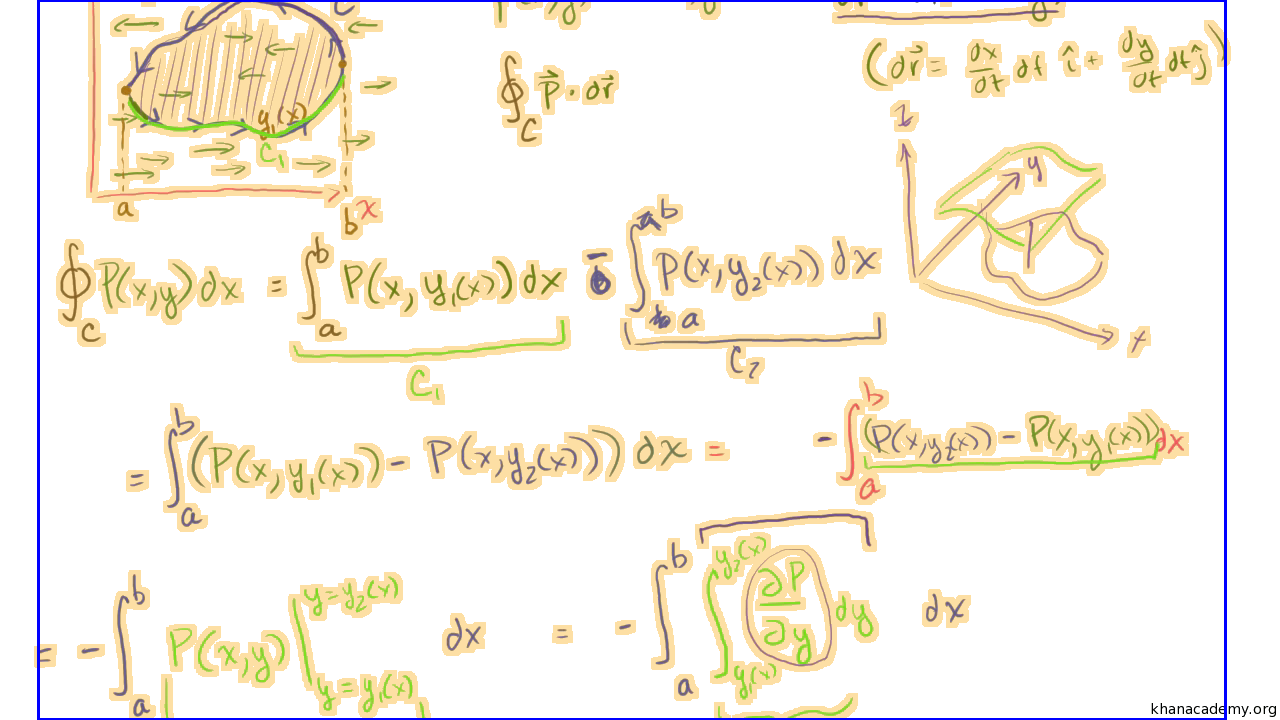 (dr⃗ = dx/dt dt î + dy/dt dt ĵ)
∮_C P⃗ · dr⃗
y₁(x)
C₁
a b x
z
y
x
∮_C P(x,y) dx = ∫_a^b P(x, y₁(x)) dx - ∫_a^b P(x, y₂(x)) dx
C₁ C₂
= ∫_a^b (P(x, y₁(x)) - P(x, y₂(x))) dx = - ∫_a^b (P(x, y₂(x)) - P(x, y₁(x))) dx
= - ∫_a^b P(x,y) |_{y = y₁(x)}^{y = y₂(x)} dx = - ∫_a^b ∫_{y₁(x)}^{y₂(x)} ∂P/∂y dy dx
khanacademy.org